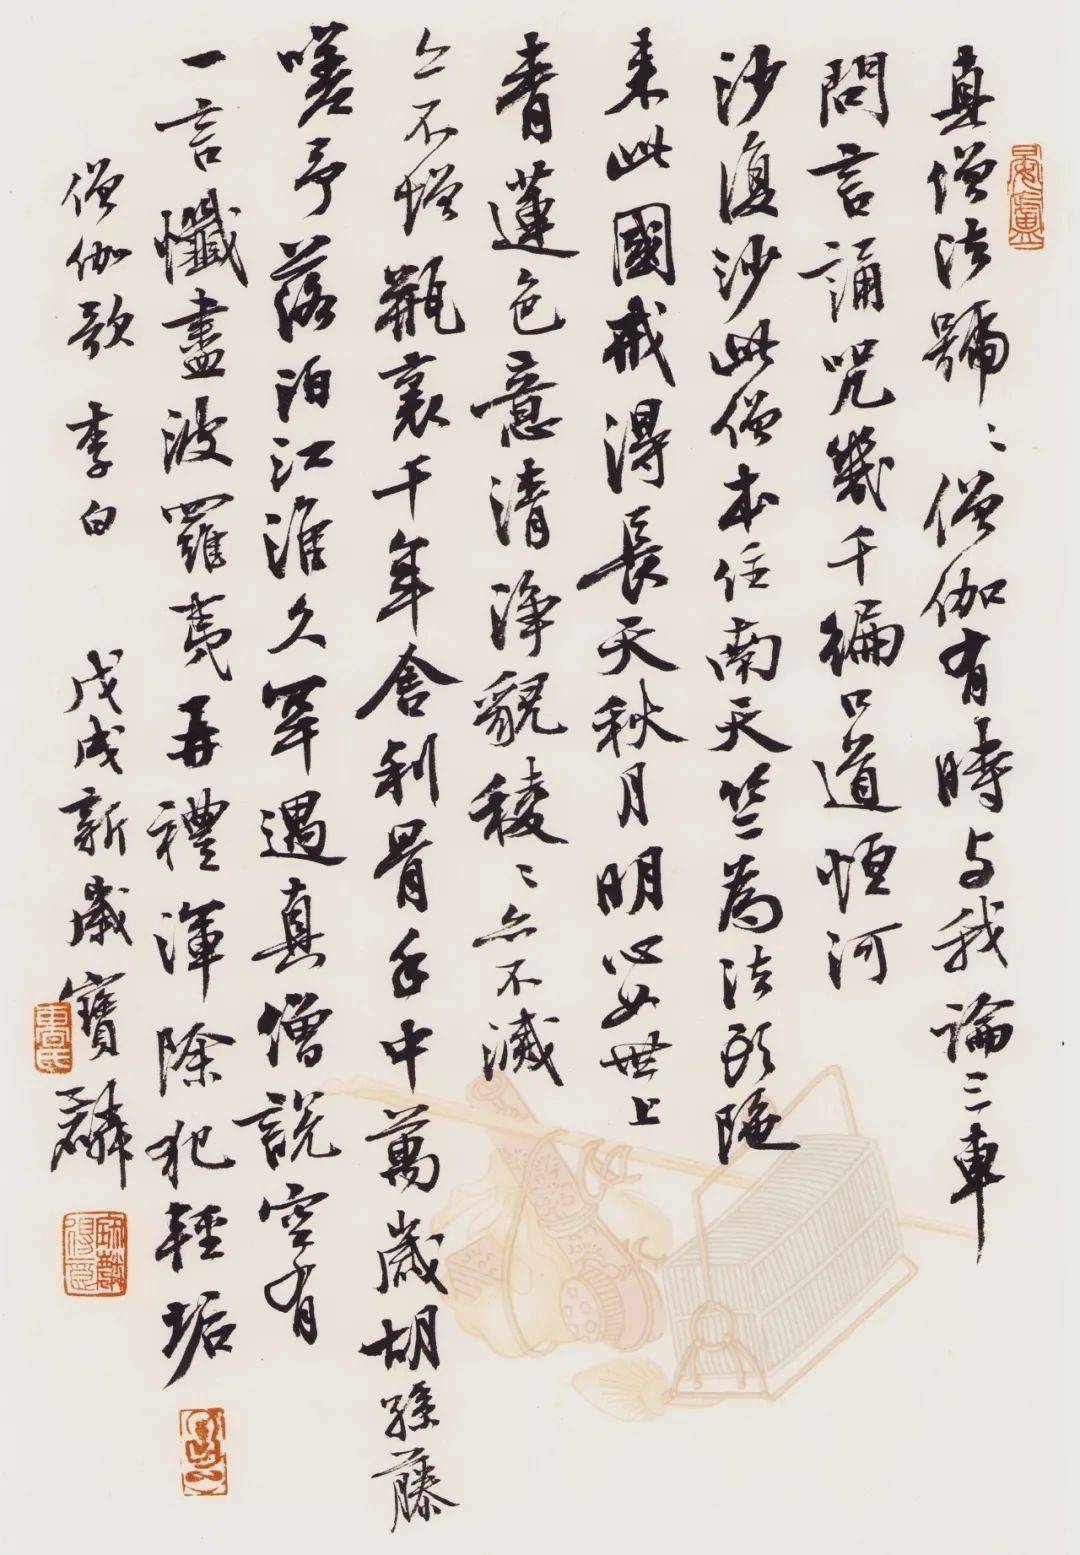 真僧法號〻僧伽有時与我論三車
問言誦咒幾千編口道恒河
沙復沙此僧本住南天竺為法頭陁
来此國戒得長天秋月明心如世上
青蓮色意清淨貌稜〻亦不減
亦不增瓶裏千年舍利骨手中萬歲胡孫藤
嗟予落泊江淮久罕遇真僧說空有
一言懺盡波羅夷再禮渾除犯輕垢
僧伽歌 李白 戊戌新歲寶麟